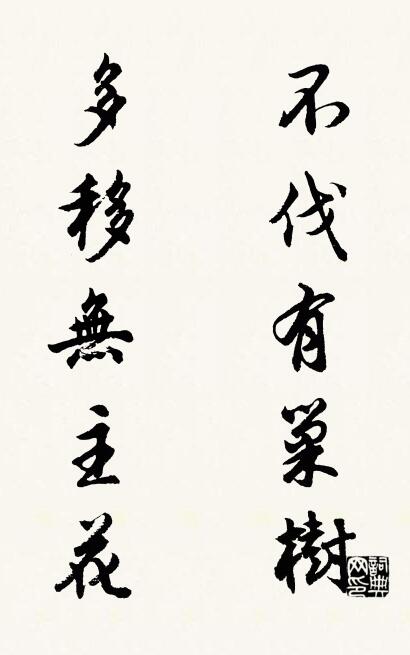 不伐有巢樹
多移無主花
詞典网印